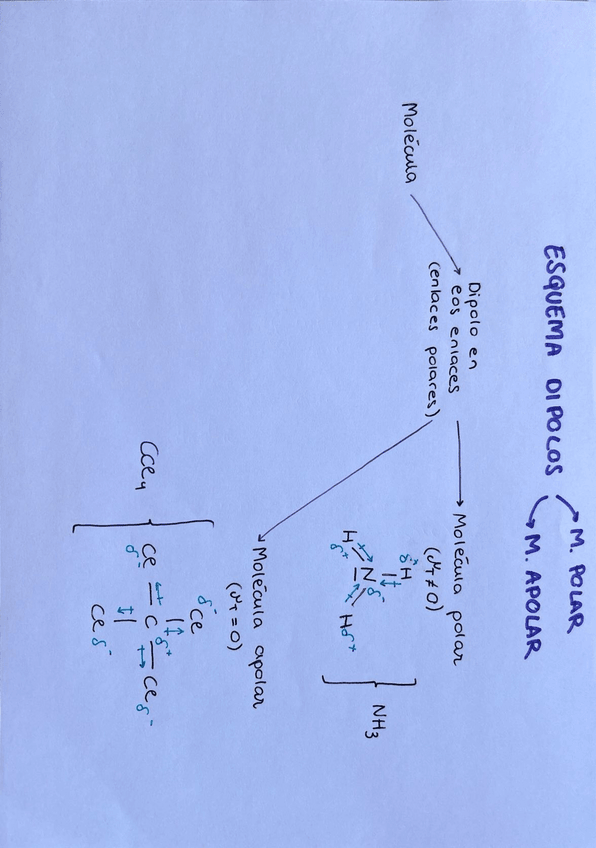 ESQUEMA DIPOLOS
M. POLAR
M. APOLAR
Molécula
Dipolo en
los enlaces
(enlaces polares)
Molécula polar
(μT ≠ 0)
δ+ H
H δ+
N δ-
H δ+
NH3
Molécula apolar
(μT = 0)
CCl4
δ- Cl
Cl δ-
C δ+
Cl δ-
Cl δ-